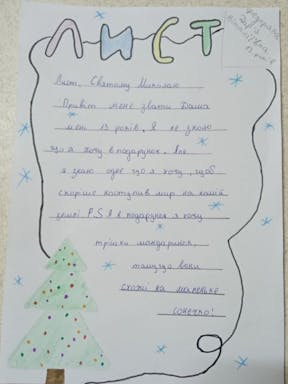 ЛИСТ
Лист, Святому Миколаю
Привіт мене звати Даша
мені 13 років, Я не знаю
що я хочу в подарунок, але
я знаю одне що я хочу, щоб
скоріше наступив мир на нашій
землі P.S Я в подарунок я хочу
трішки мандаринок,
томущо вони
схожі на маленьке
сонечко!
Дар'я
13 років